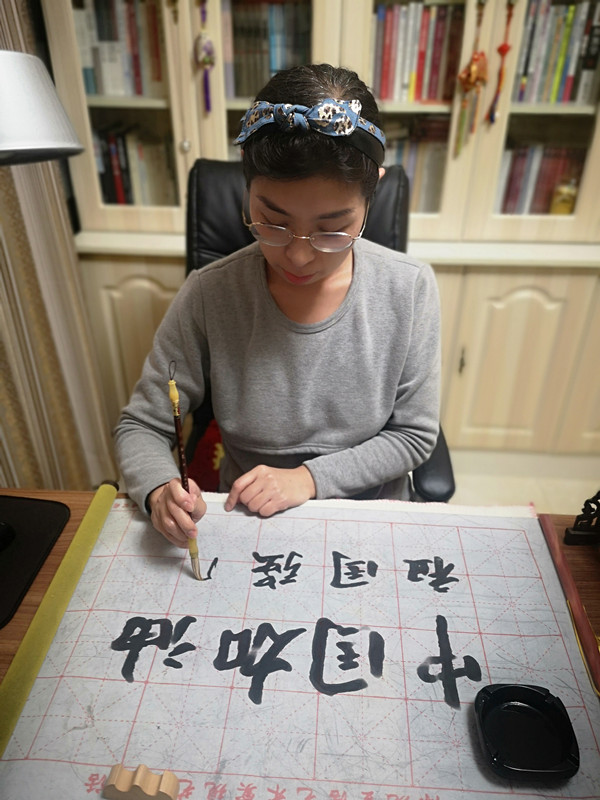 中国加油
祖国强